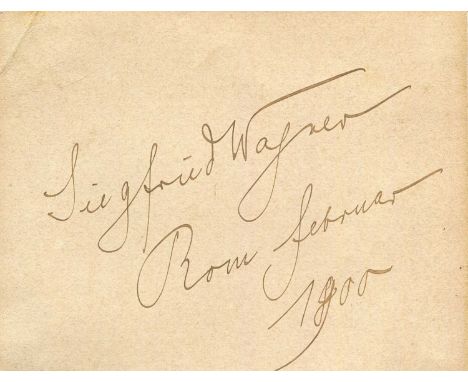 Siegfried Wagner
Rom februar
1900